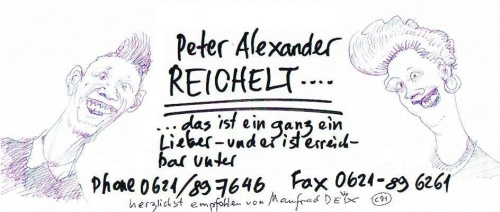 Peter Alexander
REICHELT....
...das ist ein ganz ein
Lieber-und er ist erreich-
bar unter
Phone 0621/897646 Fax 0621-896261
herzlichst empfohlen von Manfred DEIX C91